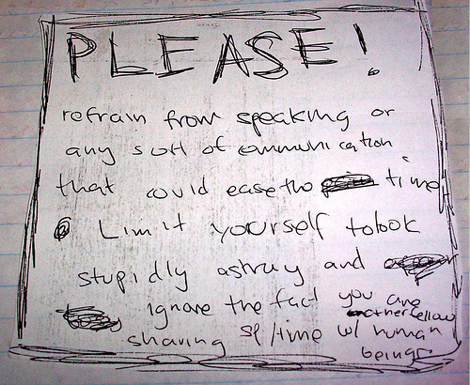 PLEASE!
refrain from speaking or
any sort of communication
that could ease the time
Limit yourself to look
stupidly astray and
ignore the fact you are
another fellow
sharing sp/time w/ human
beings